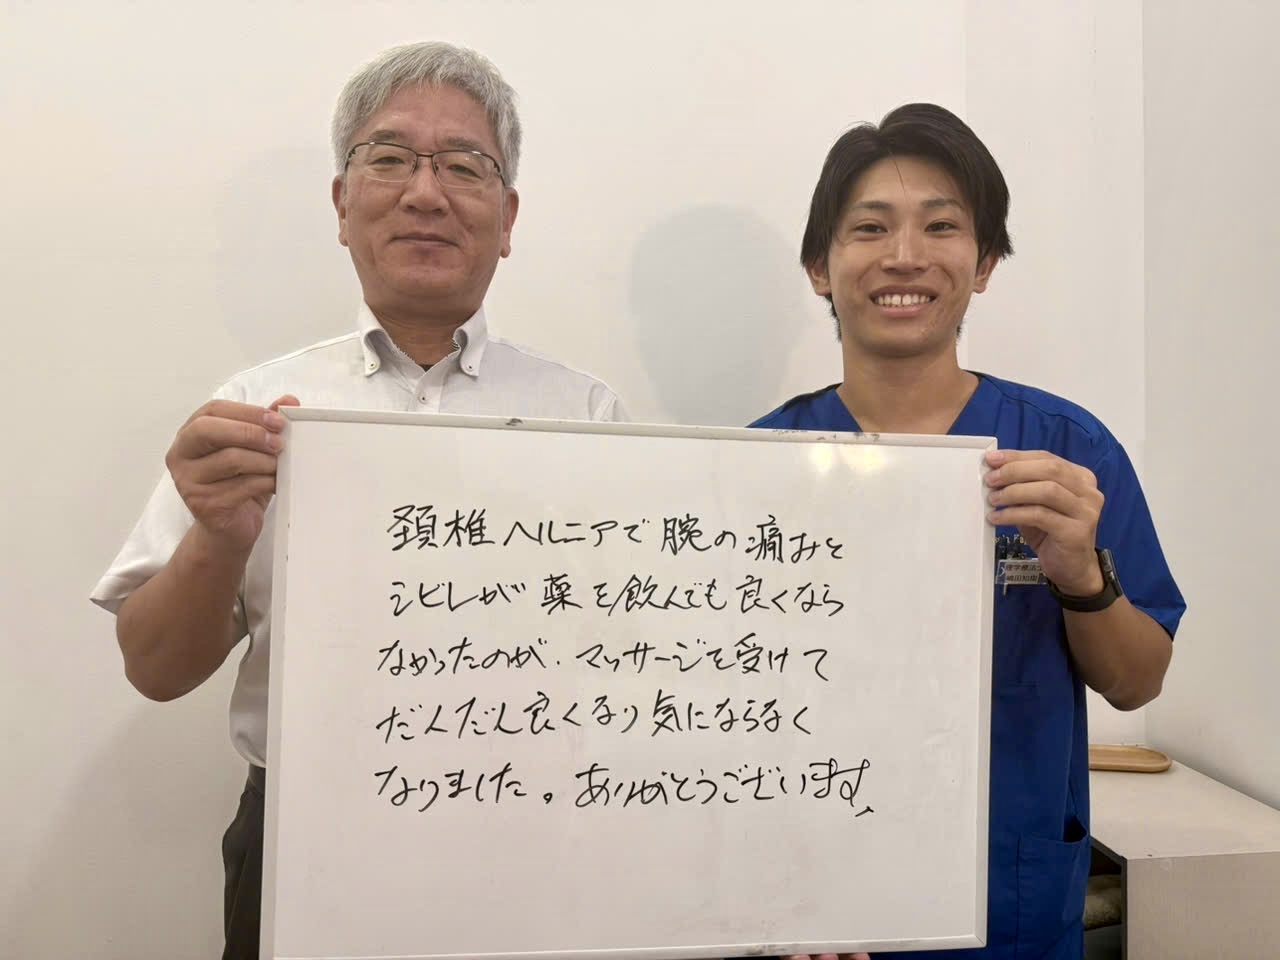 頚椎ヘルニアで腕の痛みと
シビレが薬を飲んでも良くなら
なかったのが、マッサージを受けて
だんだん良くなり気にならなく
なりました。ありがとうございます。
理学療法士
嶋田知樹